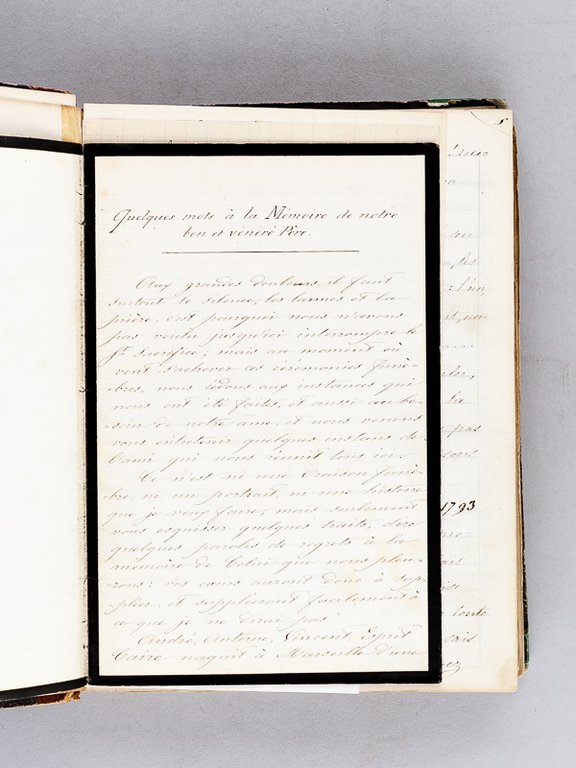 Quelques mots à la Mémoire de notre
bon et vénéré Père.
Aux grandes douleurs, il faut
surtout le silence, les larmes et la
prière, c'est pourquoi nous n'avons
pas voulu jusqu'ici interrompre le
St Sacrifice; mais au moment où
vont s'achever ces cérémonies funè-
bres, nous cédons aux instances qui
nous ont été faites, et aussi au be-
soin de notre âme, et nous venons
vous entretenir quelques instans de
l'ami qui nous réunit tous ici.
Ce n'est ni une Oraison funè-
bre, ni un portrait, ni une histoire
que je veux faire; mais seulement
vous esquisser quelques traits, dire
quelques paroles de regrets à la
mémoire de Celui que nous pleu-
rons: vos cœurs auront donc à sup-
pléer, et suppléeront facilement à
ce que je ne dirai pas.
André, Antoine, Vincent, Esprit
Caire naquit à Marseille d'une
5
1793
toute